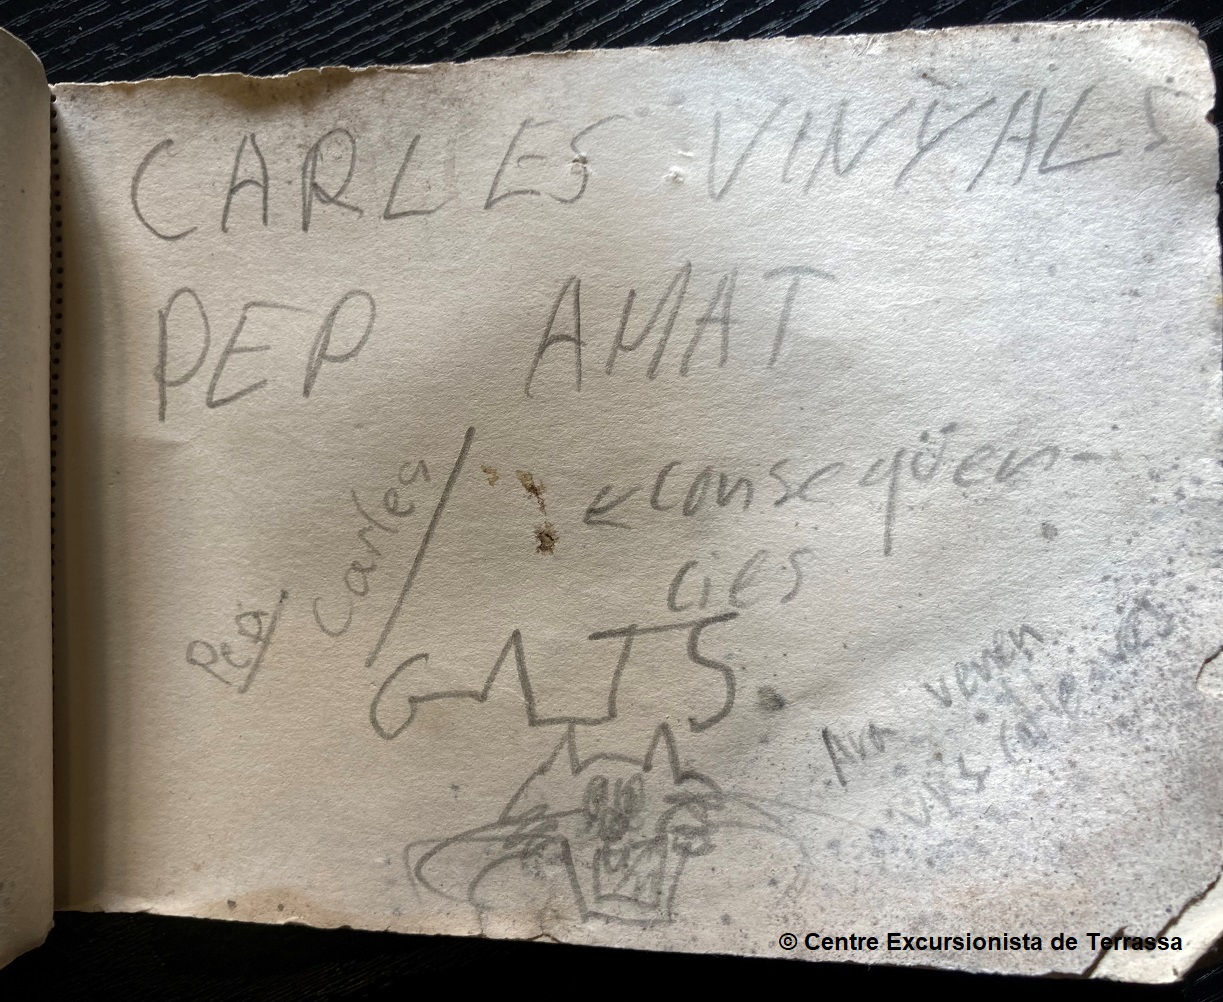 CARLES VINYALS
PEP AMAT
← conseqüen-
cies
Carles
Pep
GATS
Ara venen
© Centre Excursionista de Terrassa